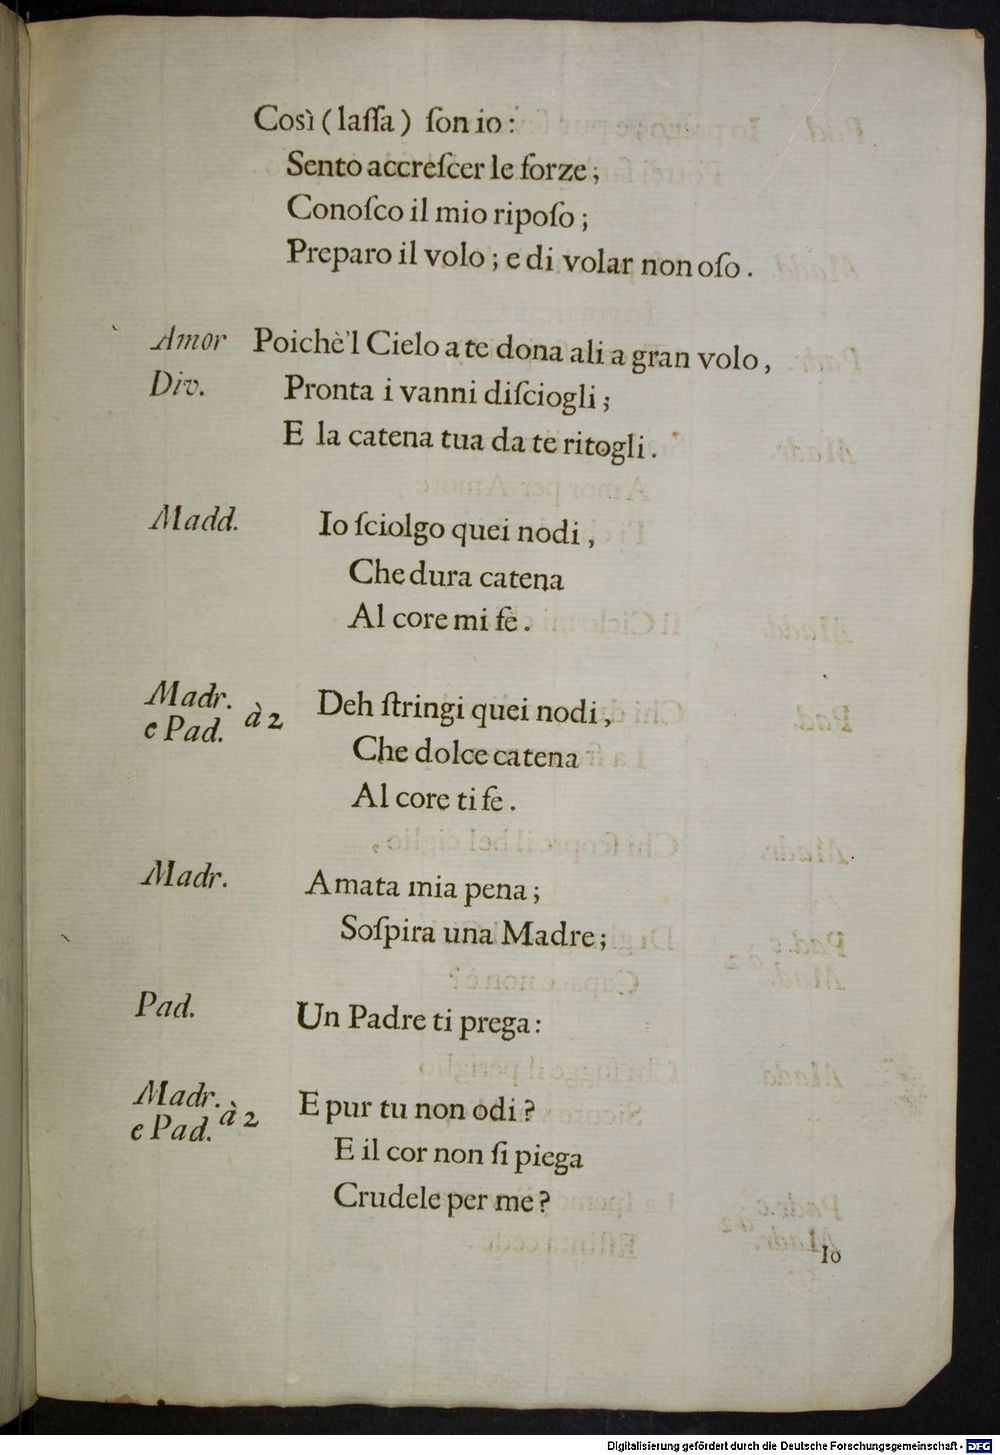 Così (laſſa) ſon io:
Sento accreſcer le forze;
Conoſco il mio ripoſo;
Preparo il volo; e di volar non oſo.
Amor Poichè'l Cielo a te dona ali a gran volo,
Div. Pronta i vanni diſciogli;
E la catena tua da te ritogli.
Madd. Io ſciolgo quei nodi,
Che dura catena
Al core mi fè.
Madr. e Pad. à 2 Deh ſtringi quei nodi,
Che dolce catena
Al core ti fe.
Madr. Amata mia pena;
Soſpira una Madre;
Pad. Un Padre ti prega:
Madr. e Pad. à 2 E pur tu non odi?
E il cor non ſi piega
Crudele per me?
Io
Digitalisierung gefördert durch die Deutsche Forschungsgemeinschaft - DFG